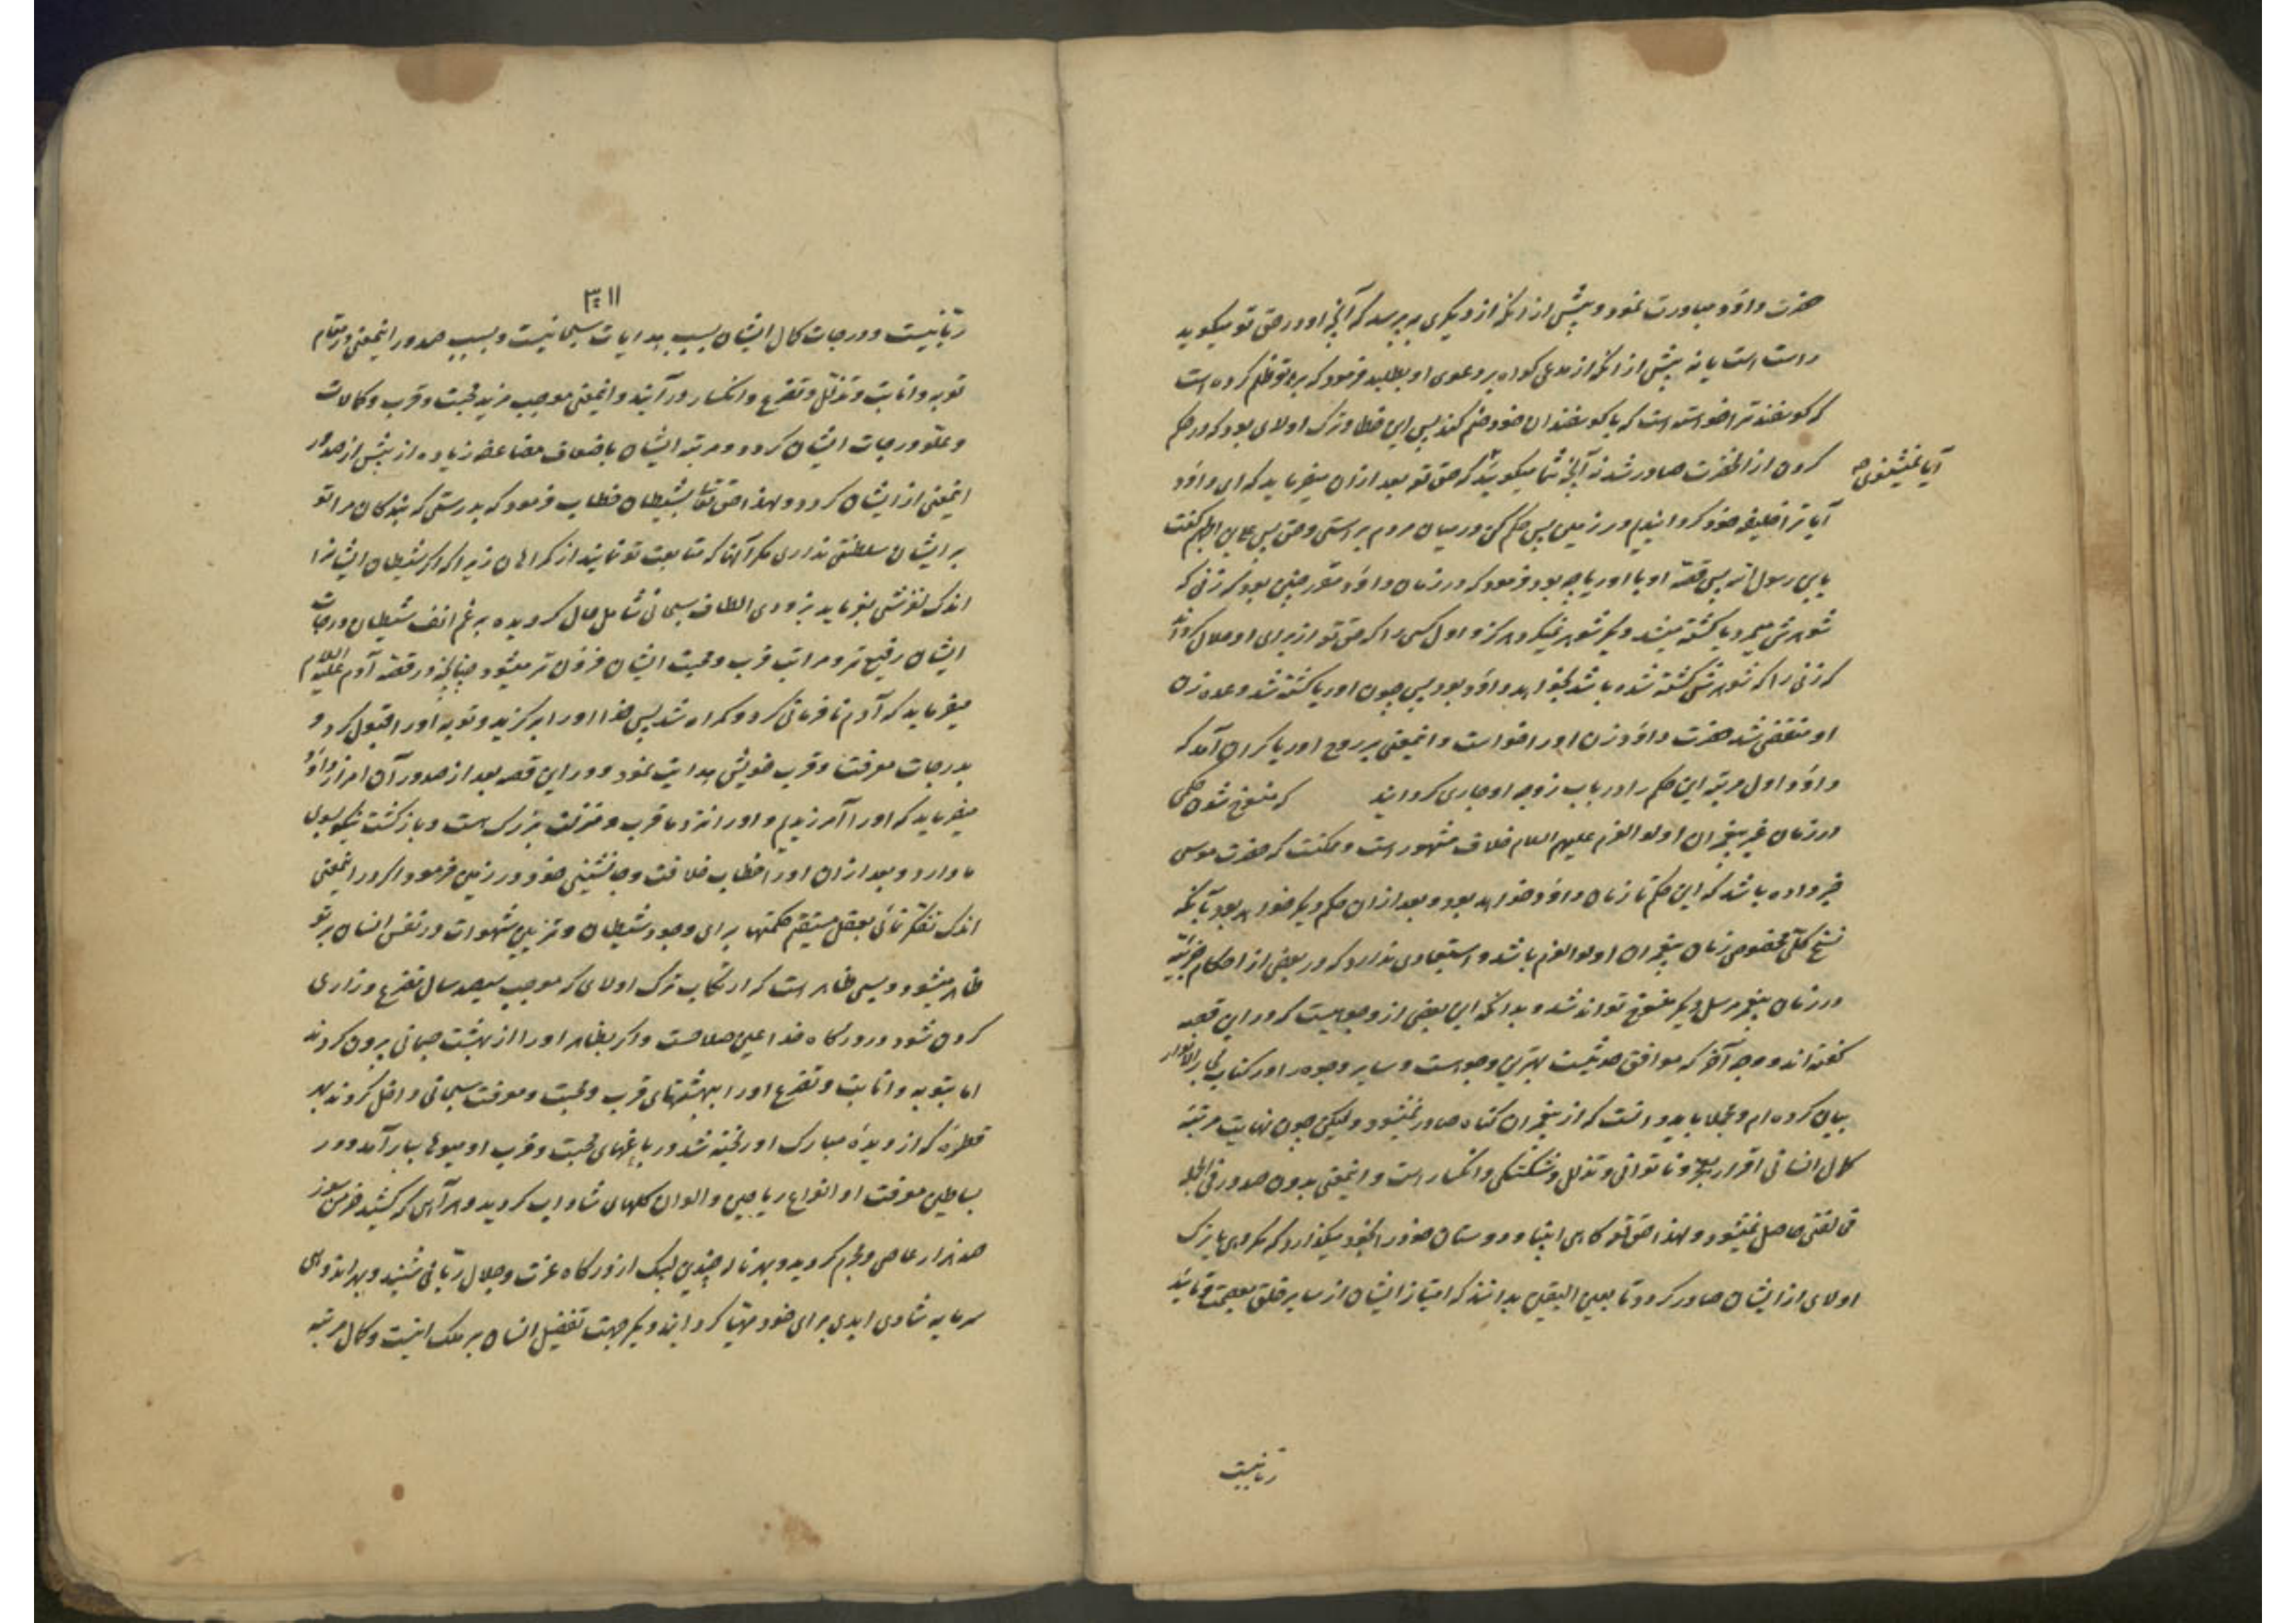 حضرت داود مبادرت نمود و پیش از آنکه از دیگری بپرسد که آنچه او در حق تو میکوید
راست است یا نه پیش از آنکه از مدعی کواه بر دعوی او بطلبد فرمود که بر تو ظلم کرده است
که کوسفند ترا خواسته است که با کوسفندان خود ضم کند پس این خطا و ترک اولای بود که در حکم
کردن از آنحضرت صادر شد نه آنچه شما میکوئید که حق تعالی بعد از آن میفرماید که ای داود
آیا نمیشنوی که
آیا ترا خلیفه خود کردانیدیم در زمین پس حکم کن در میان مردم براستی و حق پس علی بن الجهم کفت
یا بن رسول الله پس قصه او با اوریا چه بود فرمود که در زمان داود مقرر چنین بود که زنی که
شوهرش میمرد یا کشته میشد دیگر شوهر نمیکرد هرکز و اول کسی را که حق تعالی از برای او حلال کردانید
که زنی را که شوهرش کشته شده باشد بخواهد داود بود پس چون اوریا کشته شد و عده زن
او منقضی شد حضرت داود زن او را خواست و اینمعنی بر روح اوریا کران آمد که
داود اول مرتبه این حکم را در باب زوجه او جاری کردانید که منسوخ شدن حکمی
در زمان غیر پیغمبران اولو العزم علیهم السلام خلاف مشهور است و ممکنست که حضرت موسی
خبر داده باشد که این حکم تا زمان داود خواهد بود و بعد از آن حکم دیگر خواهد بود یا آنکه
نسخ کلی مخصوص زمان پیغمبران اولو العزم باشد و استبعادی ندارد که در بعضی از احکام جزئیه
در زمان پیغمبر مرسل دیگر منسوخ تواند شد و بدانکه این بعضی از وجوهیست که در این قصه
کفته اند و وجه آخر که موافق حدیثست بهترین وجوهست و سایر وجوه را در کتاب بحار الانوار
بیان کرده ام و مجملا باید دانست که از پیغمبران کناه صادر نمیشود ولیکن چون نهایت مرتبه
کمال انسانی اقرار بعجز و ناتوانی و تذلل و شکستکی و انکسار است و اینمعنی بدون صدور فی الجمله
مخالفتی حاصل نمیشود و لهذا حق تعالی کاهی انبیا و دوستان خود را بخود میکذارد که مکروهی یا ترک
اولای از ایشان صادر کردد تا بعین الیقین بدانند که امتیاز ایشان از سایر خلق بعصمت و تائید
ربانیست
۳۱۱
ربانیست و درجات کمال ایشان بسبب هدایات سبحانیست و بسبب صدور اینمعنی در مقام
توبه و انابت و تذلل و تضرع و انکسار در آیند و اینمعنی موجب مزید محبت و قرب و کمالات
و علو درجات ایشان کردد و مرتبه ایشان باضعاف مضاعفه زیاده از پیش از صدور
اینمعنی از ایشان کردد و لهذا حق تعالی بشیطان خطاب فرمود که بدرستی که بندکان مرا تو
بر ایشان سلطنتی نداری مکر آنها که متابعت تو نمایند از کمراهان زیرا که اکر شیطان ایشانرا
اندک لغزشی بفرماید بزودی الطاف سبحانی شامل حال کردیده برغم انف شیطان درجات
ایشان رفیع تر و مراتب قرب و محبت ایشان فزون تر میشود چنانچه در قصه آدم علیه السلام
میفرماید که آدم نافرمانی کرد و کمراه شد پس خدا او را برکزید و توبه او را قبول کرد و
بدرجات معرفت و قرب خویش هدایت نمود و در این قصه بعد از صدور آن امر از داود
میفرماید که او را آمرزیدیم و او را نزد ما قرب و منزلت بزرک هست و بازکشت نیکو بسوی
ما دارد و بعد از آن او را خطاب خلافت و جانشینی خود در زمین فرمود و اکر در اینمعنی
اندک تفکر نمائی بعقل مستقیم حکمتها برای وجود شیطان و تزیین شهوات در نفس انسان بر تو
ظاهر میشود و بسی ظاهر است که ارتکاب ترک اولای که موجب سیصد سال تضرع و زاری
کردن شود در درکاه خدا عین صلاحست و اکر بظاهر او را از بهشت جسمانی برون کردند
اما بتوبه و انابت و تضرع او را ببهشتهای قرب و محبت و معرفت سبحانی داخل کردند بهر
قطره که از دیده مبارک او ریخته شد در باغهای محبت و قرب او میوها ببار آمد و در
بساطین معرفت او انواع ریاحین و الوان کلهای شاداب کردید و هر آهی که کشید خرمن سوز
صد هزار عاصی و مجرم کردید و بهر ناله چندین لبیک از درکاه عزت و جلال ربانی شنید و بهر اندوهی
سرمایه شادی ابدی برای خود مهیا کردانید و یکجهت تفضیل انسان بر ملک اینست و کمال مرتبه